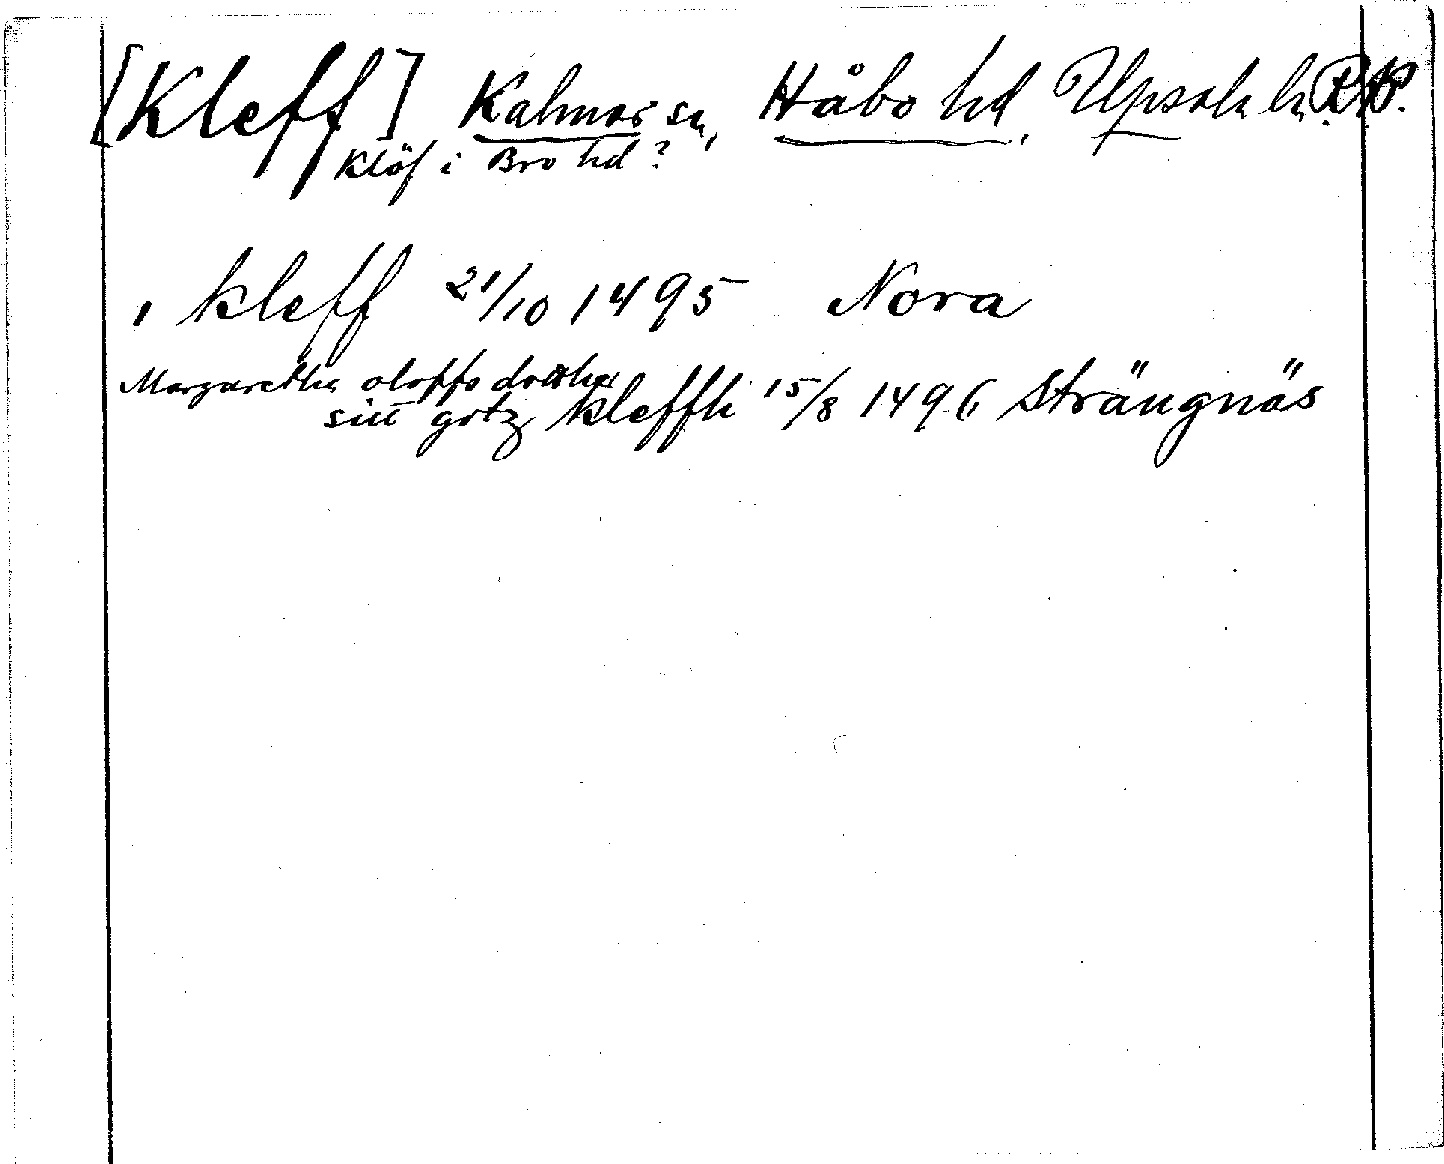 [Kleff] Kalmar sn, Håbo hd. Upsala ln R.P.
Klöf i Bro hd?
, kleff 21/10 1495 Nora
Margaretha oloffs
sitt gotz kleffh 15/8 1496 Strängnäs